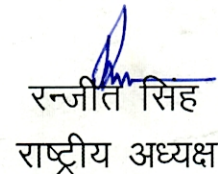 रन्जीत सिंह
राष्ट्रीय अध्यक्ष